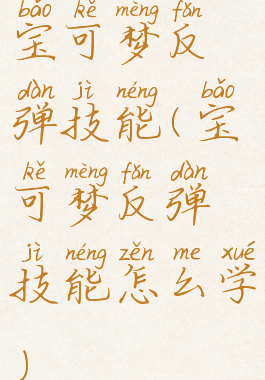 bǎo kě mèng fǎn
宝可梦反
dàn jì néng bǎo
弹技能(宝
kě mèng fǎn dàn
可梦反弹
jì néng zěn me xué
技能怎么学
)